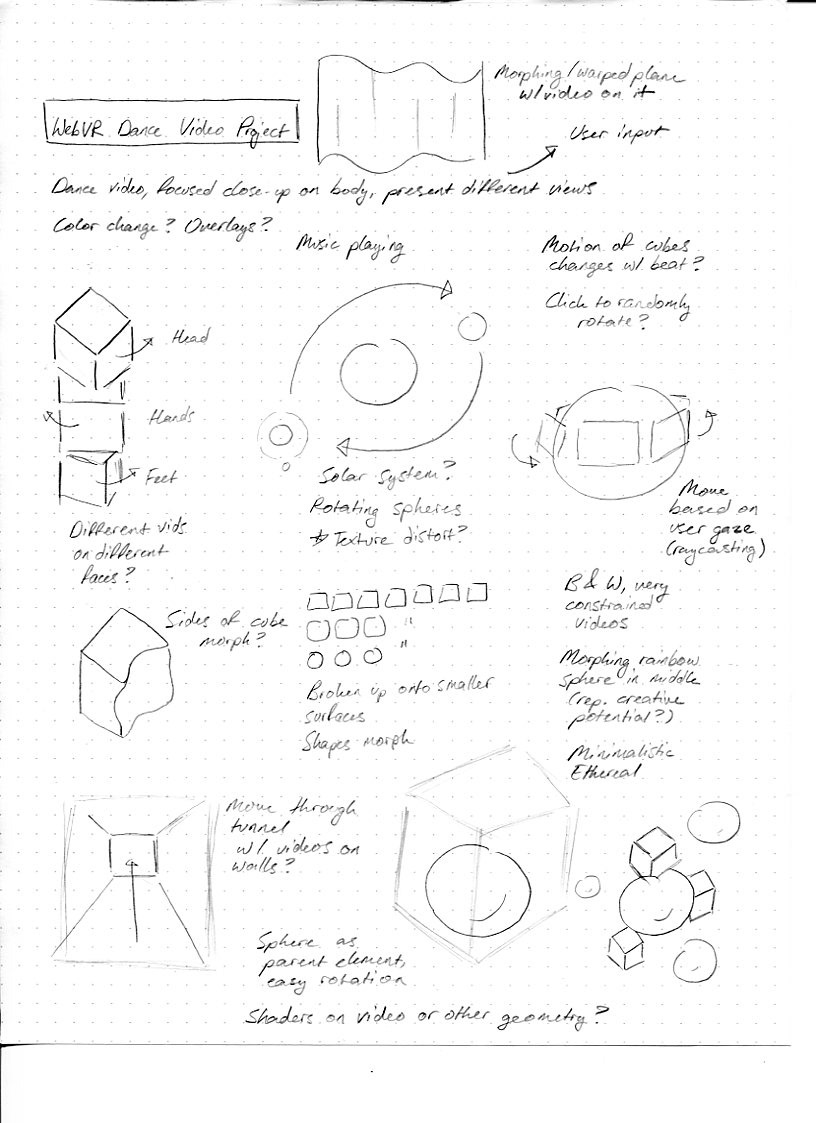 Morphing/warped plane
w/video on it
WebVR Dance Video Project
User input
Dance video, focused close-up on body, present different views
Color change? Overlays?
Music playing
Motion of cubes
changes w/ beat?
Click to randomly
rotate?
Head
Hands
Feet
Different vids
on different
faces?
Solar system?
Rotating spheres
Texture distort?
Move
based on
user gaze
(raycasting)
Sides of cube
morph?
"
"
Broken up onto smaller
surfaces
Shapes morph
B & W, very
constrained
videos
Morphing rainbow
sphere in middle
(rep. creative
potential?)
Minimalistic
Ethereal
Move through
tunnel
w/ videos on
walls?
Sphere as
parent element,
easy rotation
Shaders on video or other geometry?